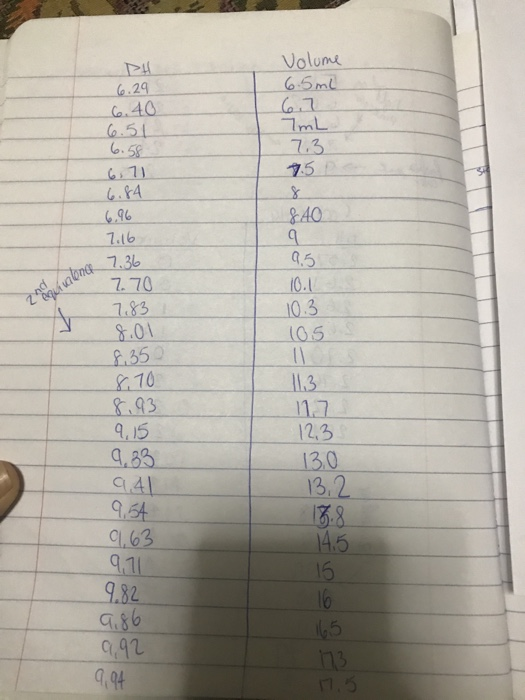 PH Volume
6.29 6.5mL
6.40 6.7
6.51 7mL
6.58 7.3
6.71 7.5
6.84 8
6.96 8.40
7.16 9
7.36 9.5
2nd equivalence
7.70 10.1
7.83 10.3
8.01 10.5
8.35 11
8.70 11.3
8.93 11.7
9.15 12.3
9.33 13.0
9.41 13.2
9.54 13.8
9.63 14.5
9.71 15
9.82 16
9.86 16.5
9.92 17.3
9.94 17.5